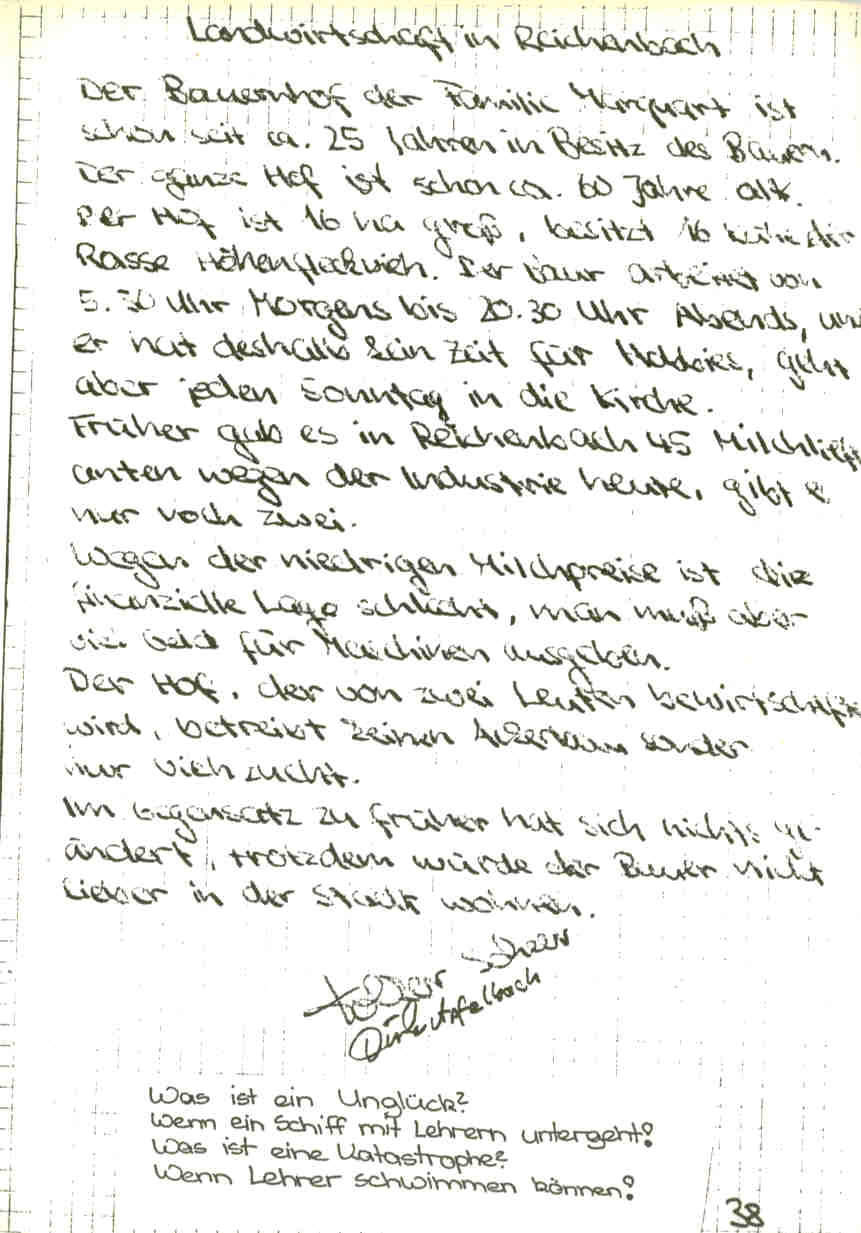 Landwirtschaft in Reichenbach
Der Bauernhof der Familie Marquart ist
schon seit ca. 25 Jahren in Besitz des Bauern.
Der ganze Hof ist schon ca. 60 Jahre alt.
Der Hof ist 16 ha groß, besitzt 16 Kühe der
Rasse Höhenfleckvieh. Der Baur arbeitet von
5.30 Uhr Morgens bis 20.30 Uhr Abends, und
er hat deshalb kein Zeit für Hobbies, geht
aber jeden Sonntag in die Kirche.
Früher gab es in Reichenbach 45 Milchlief
anten wegen der Industrie heute, gibt e
nur noch zwei.
Wegen der niedrigen Milchpreise ist die
finanzielle Lage schlecht, man muß aber
viel Geld für Maschinen ausgeben.
Der Hof, der von zwei Leuten bewirtschaft
wird, betreibt keinen Ackerbau sonder
nur Viehzucht.
Im Gegensatz zu früher hat sich nichts ge-
ändert, trotzdem würde der Bauer nicht
lieber in der Stadt wohnen.
Dirk Apfelbach
Was ist ein Unglück?
Wenn ein Schiff mit Lehrern untergeht!
Was ist eine Katastrophe?
Wenn Lehrer schwimmen können!
38